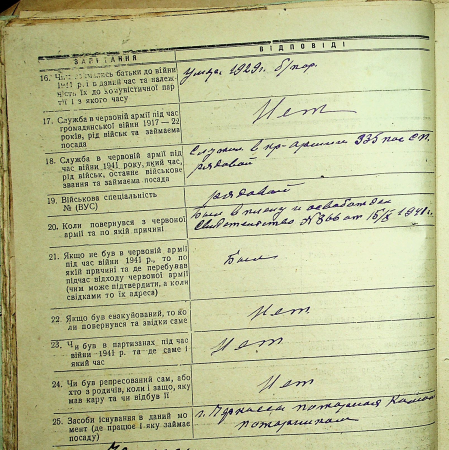 ЗАПИТАННЯ
ВІДПОВІДІ
16. Чим займались батьки до війни
1941 р. і в даний час та належ-
ність їх до комуністичної пар-
тії і з якого часу
умер 1929 г. б/пар.
17. Служба в червоній армії під час
громадянської війни 1917—22
років, рід військ та займаєма
посада
Нет
18. Служба в червоній армії під
час війни 1941 року, який час,
рід військ, останнє військове
звання та займаєма посада
Служил в кр-армии 335 пос сп.
рядовой
19. Військова спеціальність
№ (ВУС)
рядовой
20. Коли повернувся з червоної
армії та по якій причині
был в плену и освобожден
свидетельство № 866 от 15/X 1941 г.
21. Якщо не був в червоній армії
під час війни 1941 р., то по
якій причині та де перебував
підчас відходу червоної армії
(чим може підтвердити, а коли
свідками то їх адреса)
Был
22. Якщо був евакуйований, то ко-
ли повернувся та звідки саме
Нет.
23. Чи був в партизанах під час
війни 1941 р. та де саме і
який час
Нет
24. Чи був репресований сам, або
хто з родичів, коли і защо, яку
мав кару та чи відбув її
Нет
25. Засоби існування в даний мо-
мент (де працює і яку займає
посаду)
г. Черкассы пожарная Команда
пожарником